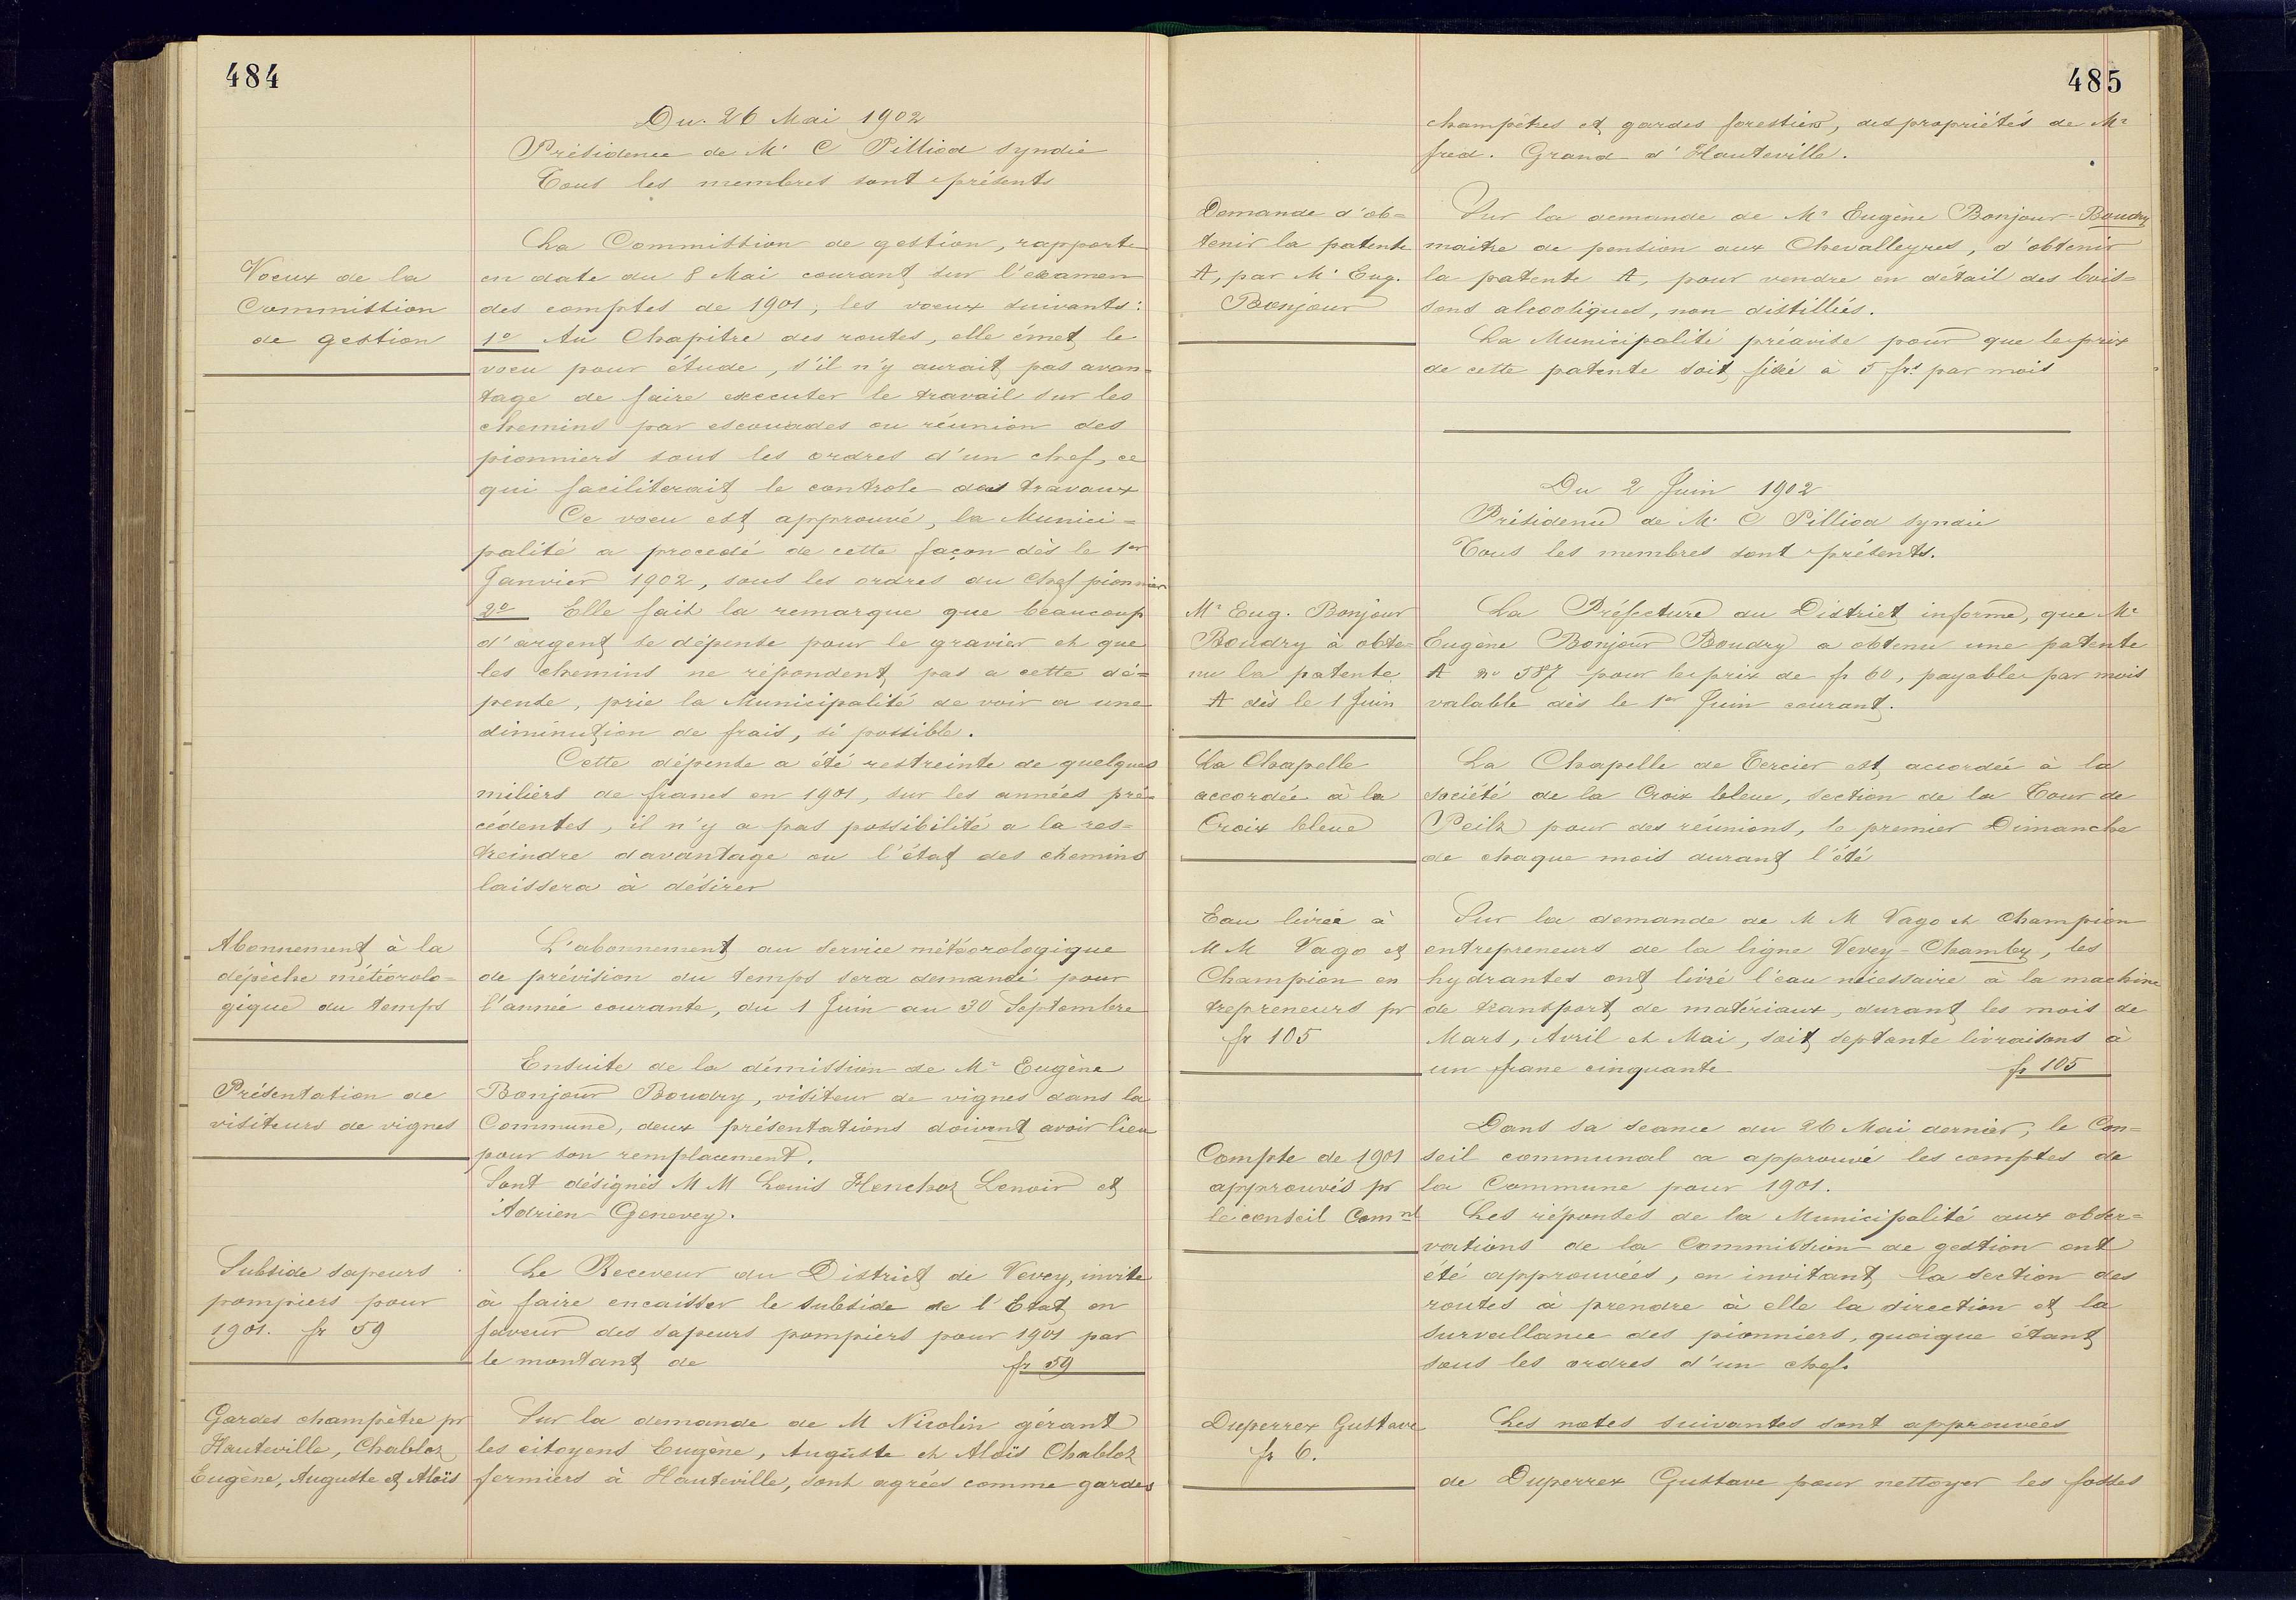 484
Du 26 Mai 1902
Présidence de Mr C Pilliod syndic
Tous les membres sont présents
Voeux de la
Commission
de gestion
La Commission de gestion, rapporte
en date du 8 Mai courant sur l'examen
des comptes de 1901, les voeux suivants:
1o Au Chapitre des routes, elle émet le
voeu pour étude, s'il n'y aurait pas avan=
tage de faire executer le travail sur les
chemins par escouades ou réunion des
pionniers sous les ordres d'un chef, ce
qui faciliterait le controle des travaux
Ce voeu est approuvé, la Munici=
palité a procedé de cette façon dès le 1er
Janvier 1902, sous les ordres du chef pionnier
2o Elle fait la remarque que beaucoup
d'argent se dépense pour le gravier et que
les chemins ne répondent pas a cette dé=
pense, prie la Municipalité de voir a une
diminution de frais, si possible.
Cette dépense a été restreinte de quelques
miliers de francs en 1901, sur les années pré=
cédentes, il n'y a pas possibilité a la res=
treindre davantage ou l'état des chemins
laissera à désirer
Abonnement à la
dépèche météorolo=
gique du temps
L'abonnement au service météorologique
de prévision du temps sera demandé pour
l'année courante, du 1 Juin au 30 Septembre
Présentation de
visiteurs de vignes
Ensuite de la démission de Mr Eugène
Bonjour Boudry, visiteur de vignes dans la
Commune, deux présentations doivent avoir lieu
pour son remplacement.
Sont désignés M M Louis Henchoz Lenoir et
Adrien Genevey.
Subside sapeurs
pompiers pour
1901. fr 59
Le Receveur du District de Vevey, invite
à faire encaisser le subside de l'Etat en
faveur des sapeurs pompiers pour 1901 par
le montant de fr 59
Gardes champètre pr
Hauteville, Chabloz
Eugène, Auguste et Aloïs
Sur la demande de M Nicolin gérant
les citoyens Eugène, Auguste et Aloïs Chabloz
fermiers à Hauteville, sont agréés comme gardes
485
champètres et gardes forestiers, des propriétés de Mr
fred. Grand d'Hauteville.
Demande d'ob=
tenir la patente
A, par Mr Eug.
Bonjour
Sur la demande de Mr Eugène Bonjour-Boudry
maitre de pension aux Chevalleyres, d'obtenir
la patente A, pour vendre en détail des bois=
sons alcooliques, non distillées.
La Municipalité préavise pour que le prix
de cette patente soit fixé à 5 frs par mois
Du 2 Juin 1902
Présidence de Mr C Pilliod syndic
Tous les membres sont présents.
Mr Eug. Bonjour
Boudry à obte=
nu la patente
A dès le 1 Juin
La Préfecture du District informe, que Mr
Eugène Bonjour Boudry a obtenu une patente
A no 587 pour le prix de fr 60, payable par mois
valable dès le 1er Juin courant.
La Chapelle
accordée à la
Croix bleue
La Chapelle de Tercier est accordée à la
société de la Croix bleue, section de la Tour de
Peilz pour des réunions, le premier Dimanche
de chaque mois durant l'été
Eau livrée à
M M Vago et
Champion en
trepreneurs pr
fr 105
Sur la demande de M M Vago et Champion
entrepreneurs de la ligne Vevey-Chamby, les
hydrantes ont livré l'eau nécessaire à la machine
de transport de matériaux, durant les mois de
Mars, Avril et Mai, soit septante livraisons à
un franc cinquante fr 105
Compte de 1901
approuvés pr
le conseil Comnl
Dans sa seance du 26 Mai dernier, le Con=
seil communal a approuvé les comptes de
la Commune pour 1901.
Les réponses de la Municipalité aux obser=
vations de la Commission de gestion ont
été approuvées, en invitant la section des
routes à prendre à elle la direction et la
surveillance des pionniers, quoique étant
sous les ordres d'un chef.
Duperrex Gustave
fr 6.
Les notes suivantes sont approuvées
de Duperrex Gustave pour nettoyer les fosses